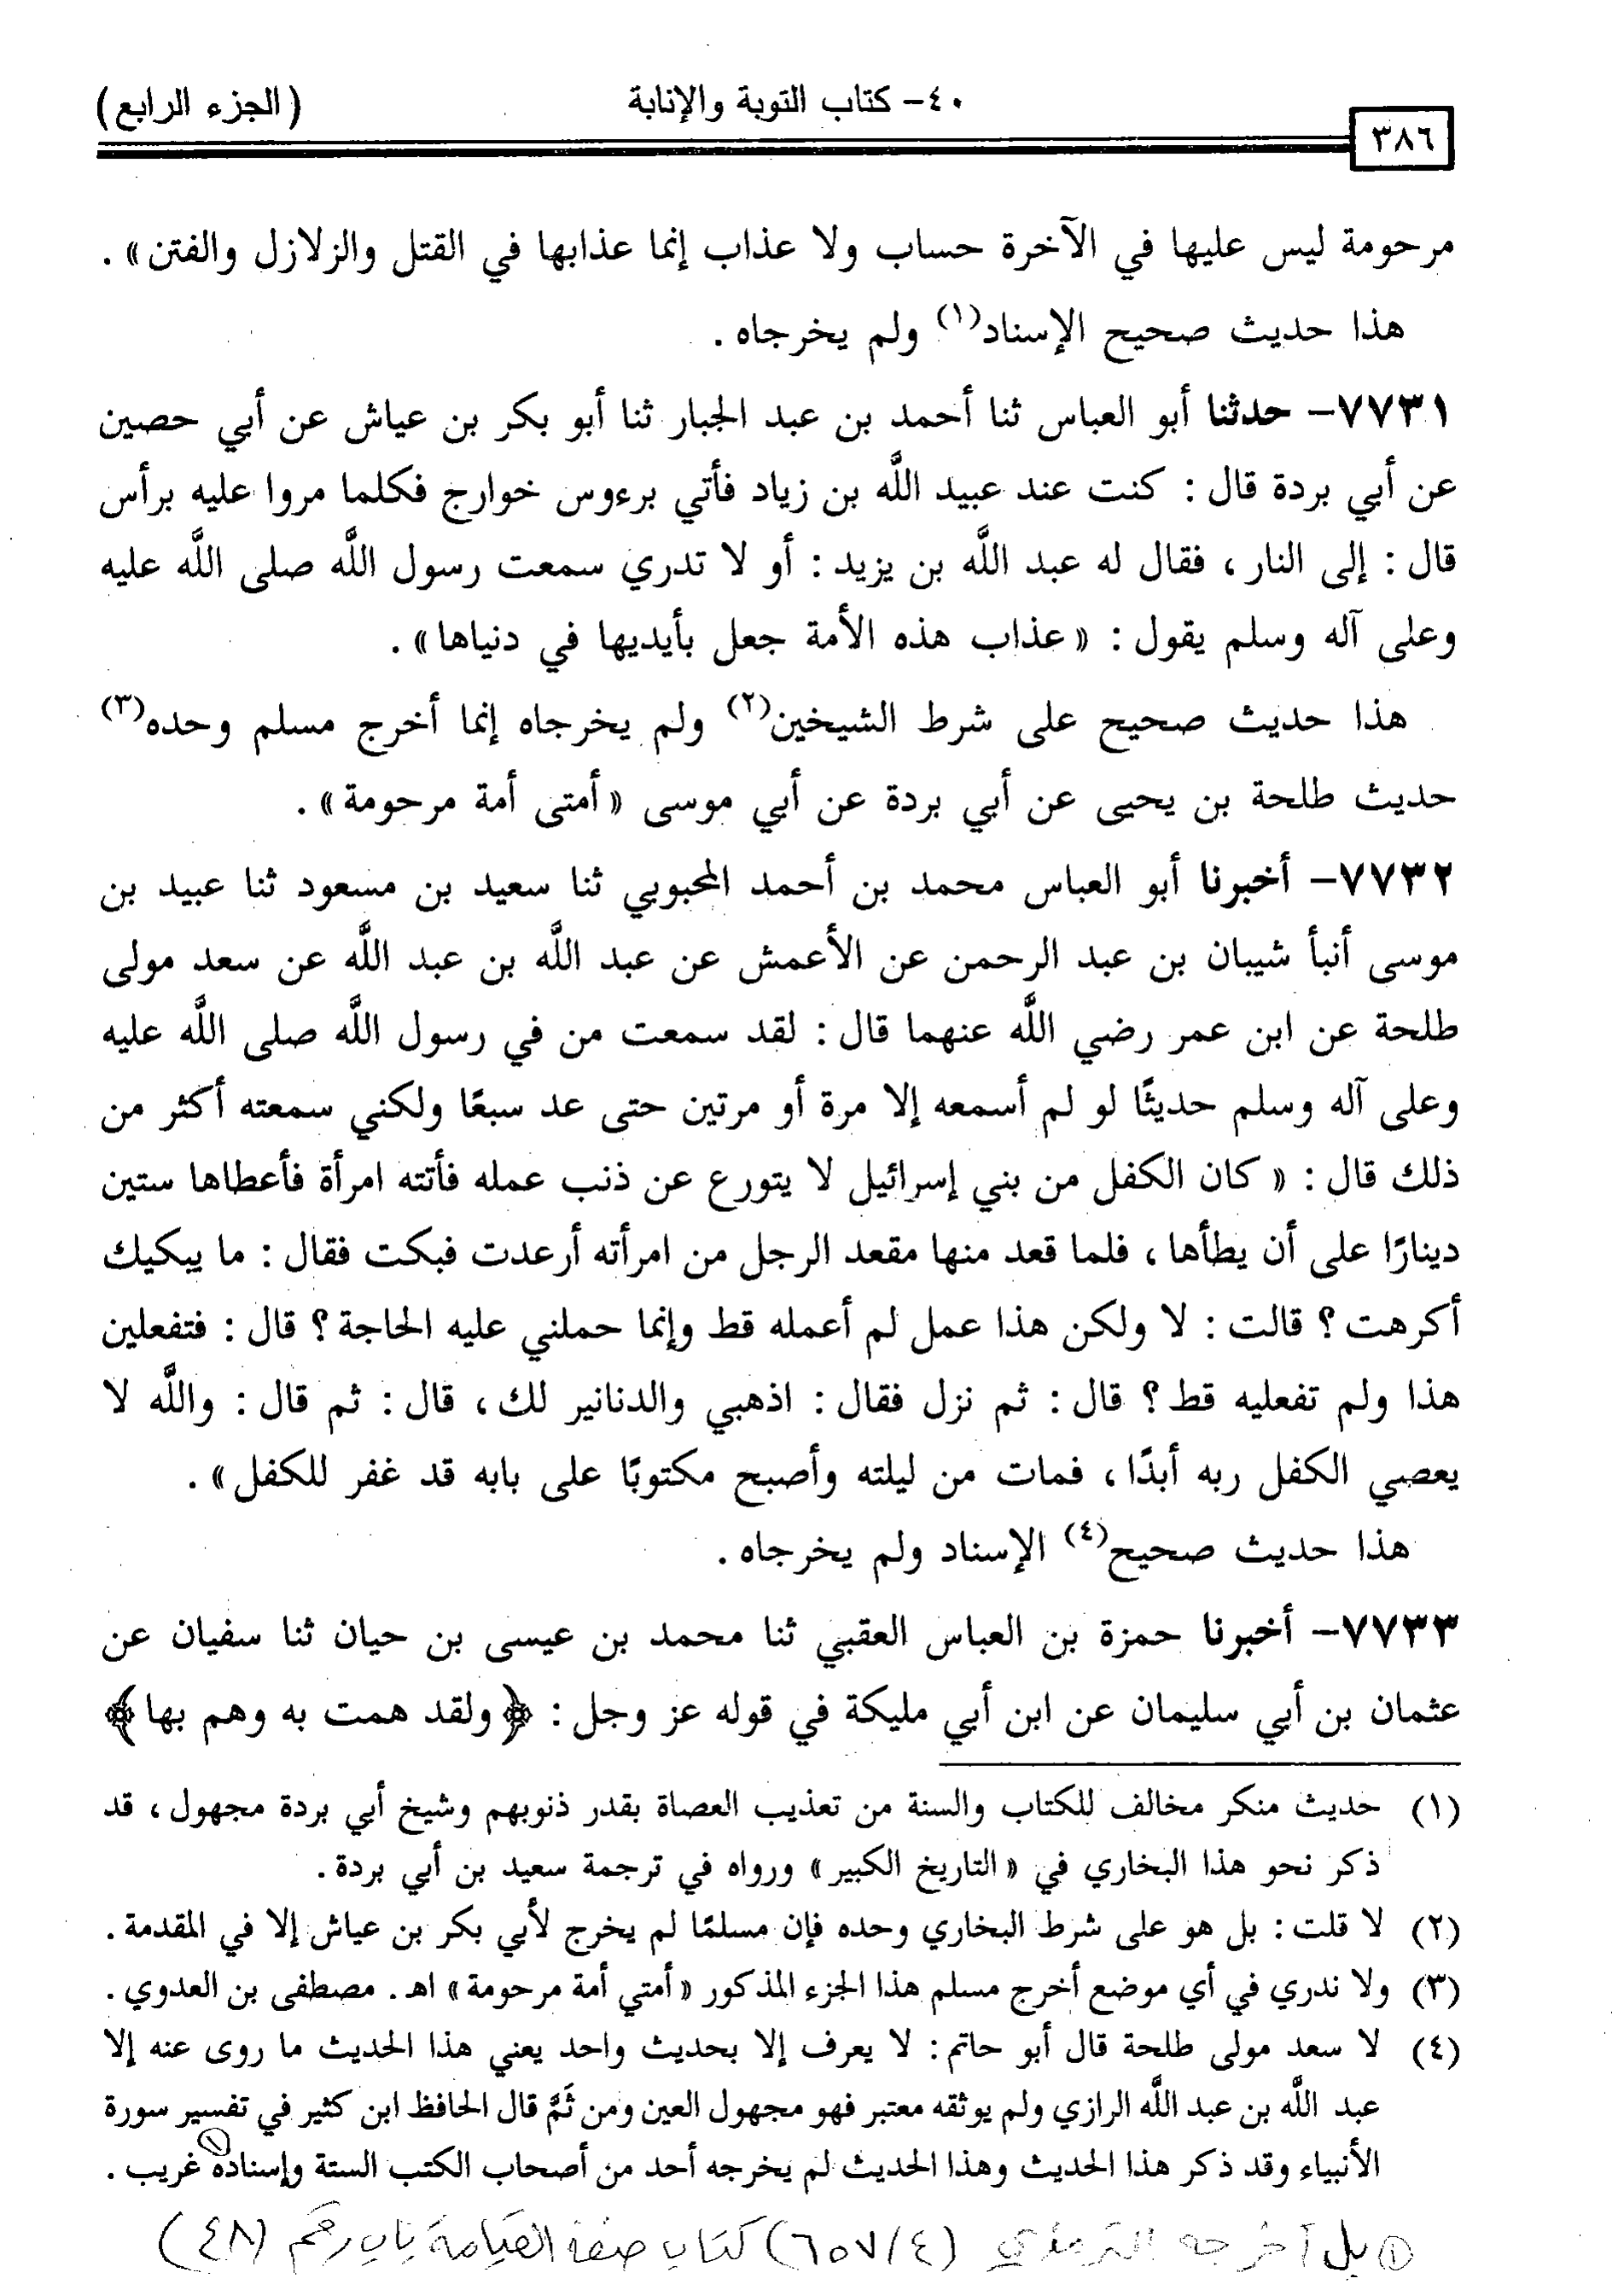 (الجزء الرابع)
٤٠- كتاب التوبة والإنابة
٣٨٦
مرحومة ليس عليها في الآخرة حساب ولا عذاب إنما عذابها في القتل والزلازل والفتن» .
هذا حديث صحيح الإسناد(١) ولم يخرجاه .
٧٧٣١- حدثنا أبو العباس ثنا أحمد بن عبد الجبار ثنا أبو بكر بن عياش عن أبي حصين
عن أبي بردة قال : كنت عند عبيد اللَّه بن زياد فأتي برءوس خوارج فكلما مروا عليه برأس
قال : إلى النار ، فقال له عبد اللَّه بن يزيد : أو لا تدري سمعت رسول اللَّه صلى اللَّه عليه
وعلى آله وسلم يقول : « عذاب هذه الأمة جعل بأيديها في دنياها» .
هذا حديث صحيح على شرط الشيخين(٢) ولم يخرجاه إنما أخرج مسلم وحده(٣)
حديث طلحة بن يحيى عن أبي بردة عن أبي موسى « أمتى أمة مرحومة» .
٧٧٣٢- أخبرنا أبو العباس محمد بن أحمد المحبوبي ثنا سعيد بن مسعود ثنا عبيد بن
موسى أنبأ شيبان بن عبد الرحمن عن الأعمش عن عبد اللَّه بن عبد اللَّه عن سعد مولى
طلحة عن ابن عمر رضي اللَّه عنهما قال : لقد سمعت من في رسول اللَّه صلى اللَّه عليه
وعلى آله وسلم حديثًا لو لم أسمعه إلا مرة أو مرتين حتى عد سبعًا ولكني سمعته أكثر من
ذلك قال : « كان الكفل من بني إسرائيل لا يتورع عن ذنب عمله فأتته امرأة فأعطاها ستين
دينارًا على أن يطأها ، فلما قعد منها مقعد الرجل من امرأته أرعدت فبكت فقال : ما يبكيك
أكرهت ؟ قالت : لا ولكن هذا عمل لم أعمله قط وإنما حملني عليه الحاجة ؟ قال : فتفعلين
هذا ولم تفعليه قط ؟ قال : ثم نزل فقال : اذهبي والدنانير لك ، قال : ثم قال : واللَّه لا
يعصي الكفل ربه أبدًا ، فمات من ليلته وأصبح مكتوبًا على بابه قد غفر للكفل» .
هذا حديث صحيح(٤) الإسناد ولم يخرجاه .
٧٧٣٣- أخبرنا حمزة بن العباس العقبي ثنا محمد بن عيسى بن حيان ثنا سفيان عن
عثمان بن أبي سليمان عن ابن أبي مليكة في قوله عز وجل : ﴿ولقد همت به وهم بها﴾
(١) حديث منكر مخالف للكتاب والسنة من تعذيب العصاة بقدر ذنوبهم وشيخ أبي بردة مجهول ، قد
ذكر نحو هذا البخاري في « التاريخ الكبير» ورواه في ترجمة سعيد بن أبي بردة .
(٢) لا قلت : بل هو على شرط البخاري وحده فإن مسلمًا لم يخرج لأبي بكر بن عياش إلا في المقدمة .
(٣) ولا ندري في أي موضع أخرج مسلم هذا الجزء المذكور « أمتي أمة مرحومة» اهـ . مصطفى بن العدوي .
(٤) لا سعد مولى طلحة قال أبو حاتم : لا يعرف إلا بحديث واحد يعني هذا الحديث ما روى عنه إلا
عبد اللَّه بن عبد اللَّه الرازي ولم يوثقه معتبر فهو مجهول العين ومن ثَمَّ قال الحافظ ابن كثير في تفسير سورة
الأنبياء وقد ذكر هذا الحديث وهذا الحديث لم يخرجه أحد من أصحاب الكتب الستة وإسناده ① غريب .
① بل أخرجه الترمذي (٤/ ٦٥٧) كتاب صفة القيامة باب رقم (٤٨)